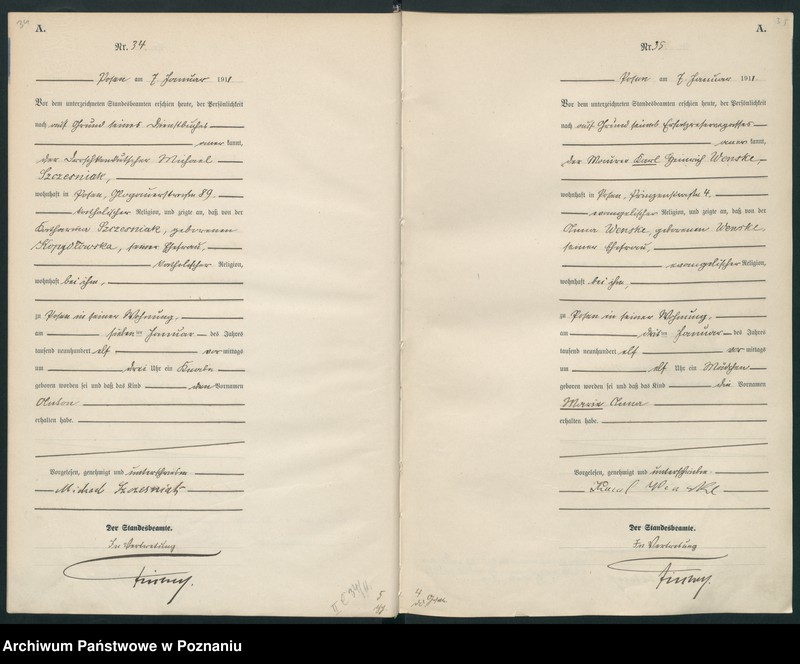 34
A.
Nr. 34
Posen am 7. Januar 1911
Vor dem unterzeichneten Standesbeamten erschien heute, der Persönlichkeit
nach auf Grund seines Dienstbuches
aner kannt,
der Droschkenkutscher Michael
Szczesniak,
wohnhaft in Posen, Glogauerstraße 89.
katholischer Religion, und zeigte an, daß von der
Katharina Szczesniak, geborenen
seiner Ehefrau,
katholischer Religion,
wohnhaft bei ihm,
zu Posen in seiner Wohnung,
am sieben ten Januar des Jahres
tausend neunhundert elf vor mittags
um drei Uhr ein Knabe
geboren worden sei und daß das Kind den Vornamen
Anton
erhalten habe.
Vorgelesen, genehmigt und unterschrieben
Michael Szczesniak
Der Standesbeamte.
In Vertretung
35
A.
Nr. 35
Posen am 7. Januar 1911
Vor dem unterzeichneten Standesbeamten erschien heute, der Persönlichkeit
nach auf Grund seines
aner kannt,
der Maurer Karl Heinrich Wenske
wohnhaft in Posen, Prinzenstraße 4.
evangelischer Religion, und zeigte an, daß von der
Anna Wenske, geborenen Wenske
seiner Ehefrau,
evangelischer Religion,
wohnhaft bei ihm,
zu Posen in seiner Wohnung,
am drit ten Januar des Jahres
tausend neunhundert elf vor mittags
um elf Uhr ein Mädchen
geboren worden sei und daß das Kind die Vornamen
Marie Anna
erhalten habe.
Vorgelesen, genehmigt und unterschrieben
Karl Wenske
Der Standesbeamte.
In Vertretung
Archiwum Państwowe w Poznaniu